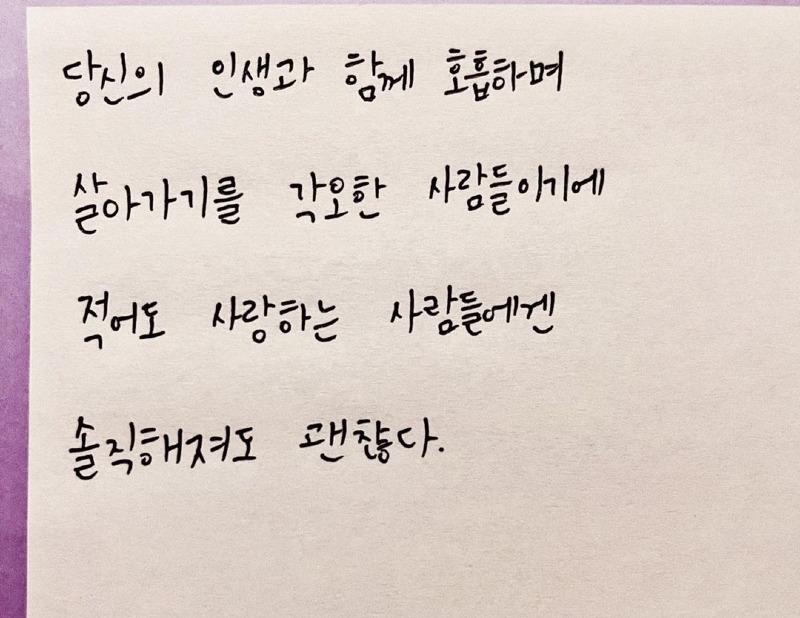 당신의 인생과 함께 호흡하며
살아가기를 각오한 사람들이기에
적어도 사랑하는 사람들에겐
솔직해져도 괜찮다.